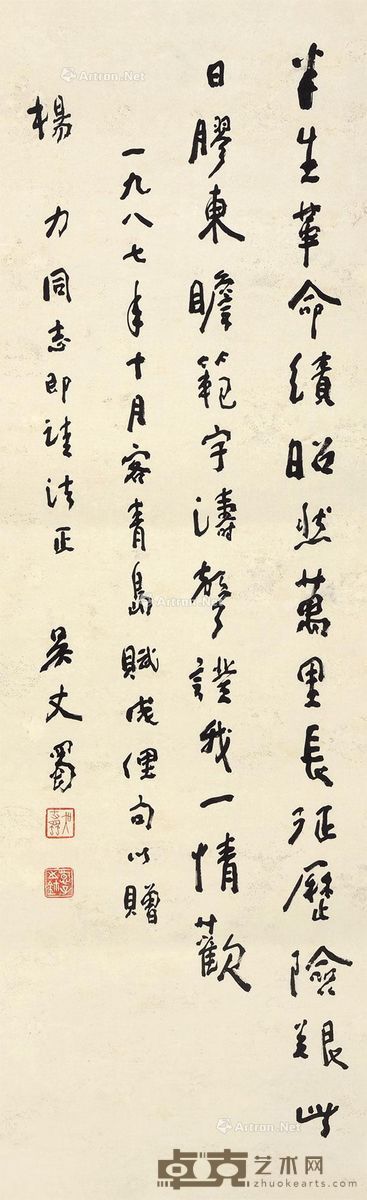 半生革命績昭然萬里長征歷險艱此
日膠東瞻範宇濤聲證我一情歡
一九八七年十月客青島賦成俚句以贈
楊力同志即請法正 吳丈蜀
Artron.Net
Artron.Net
Artron.Net
Artron.Net
Artron.Net
卓克艺术网
zhuokearts.com